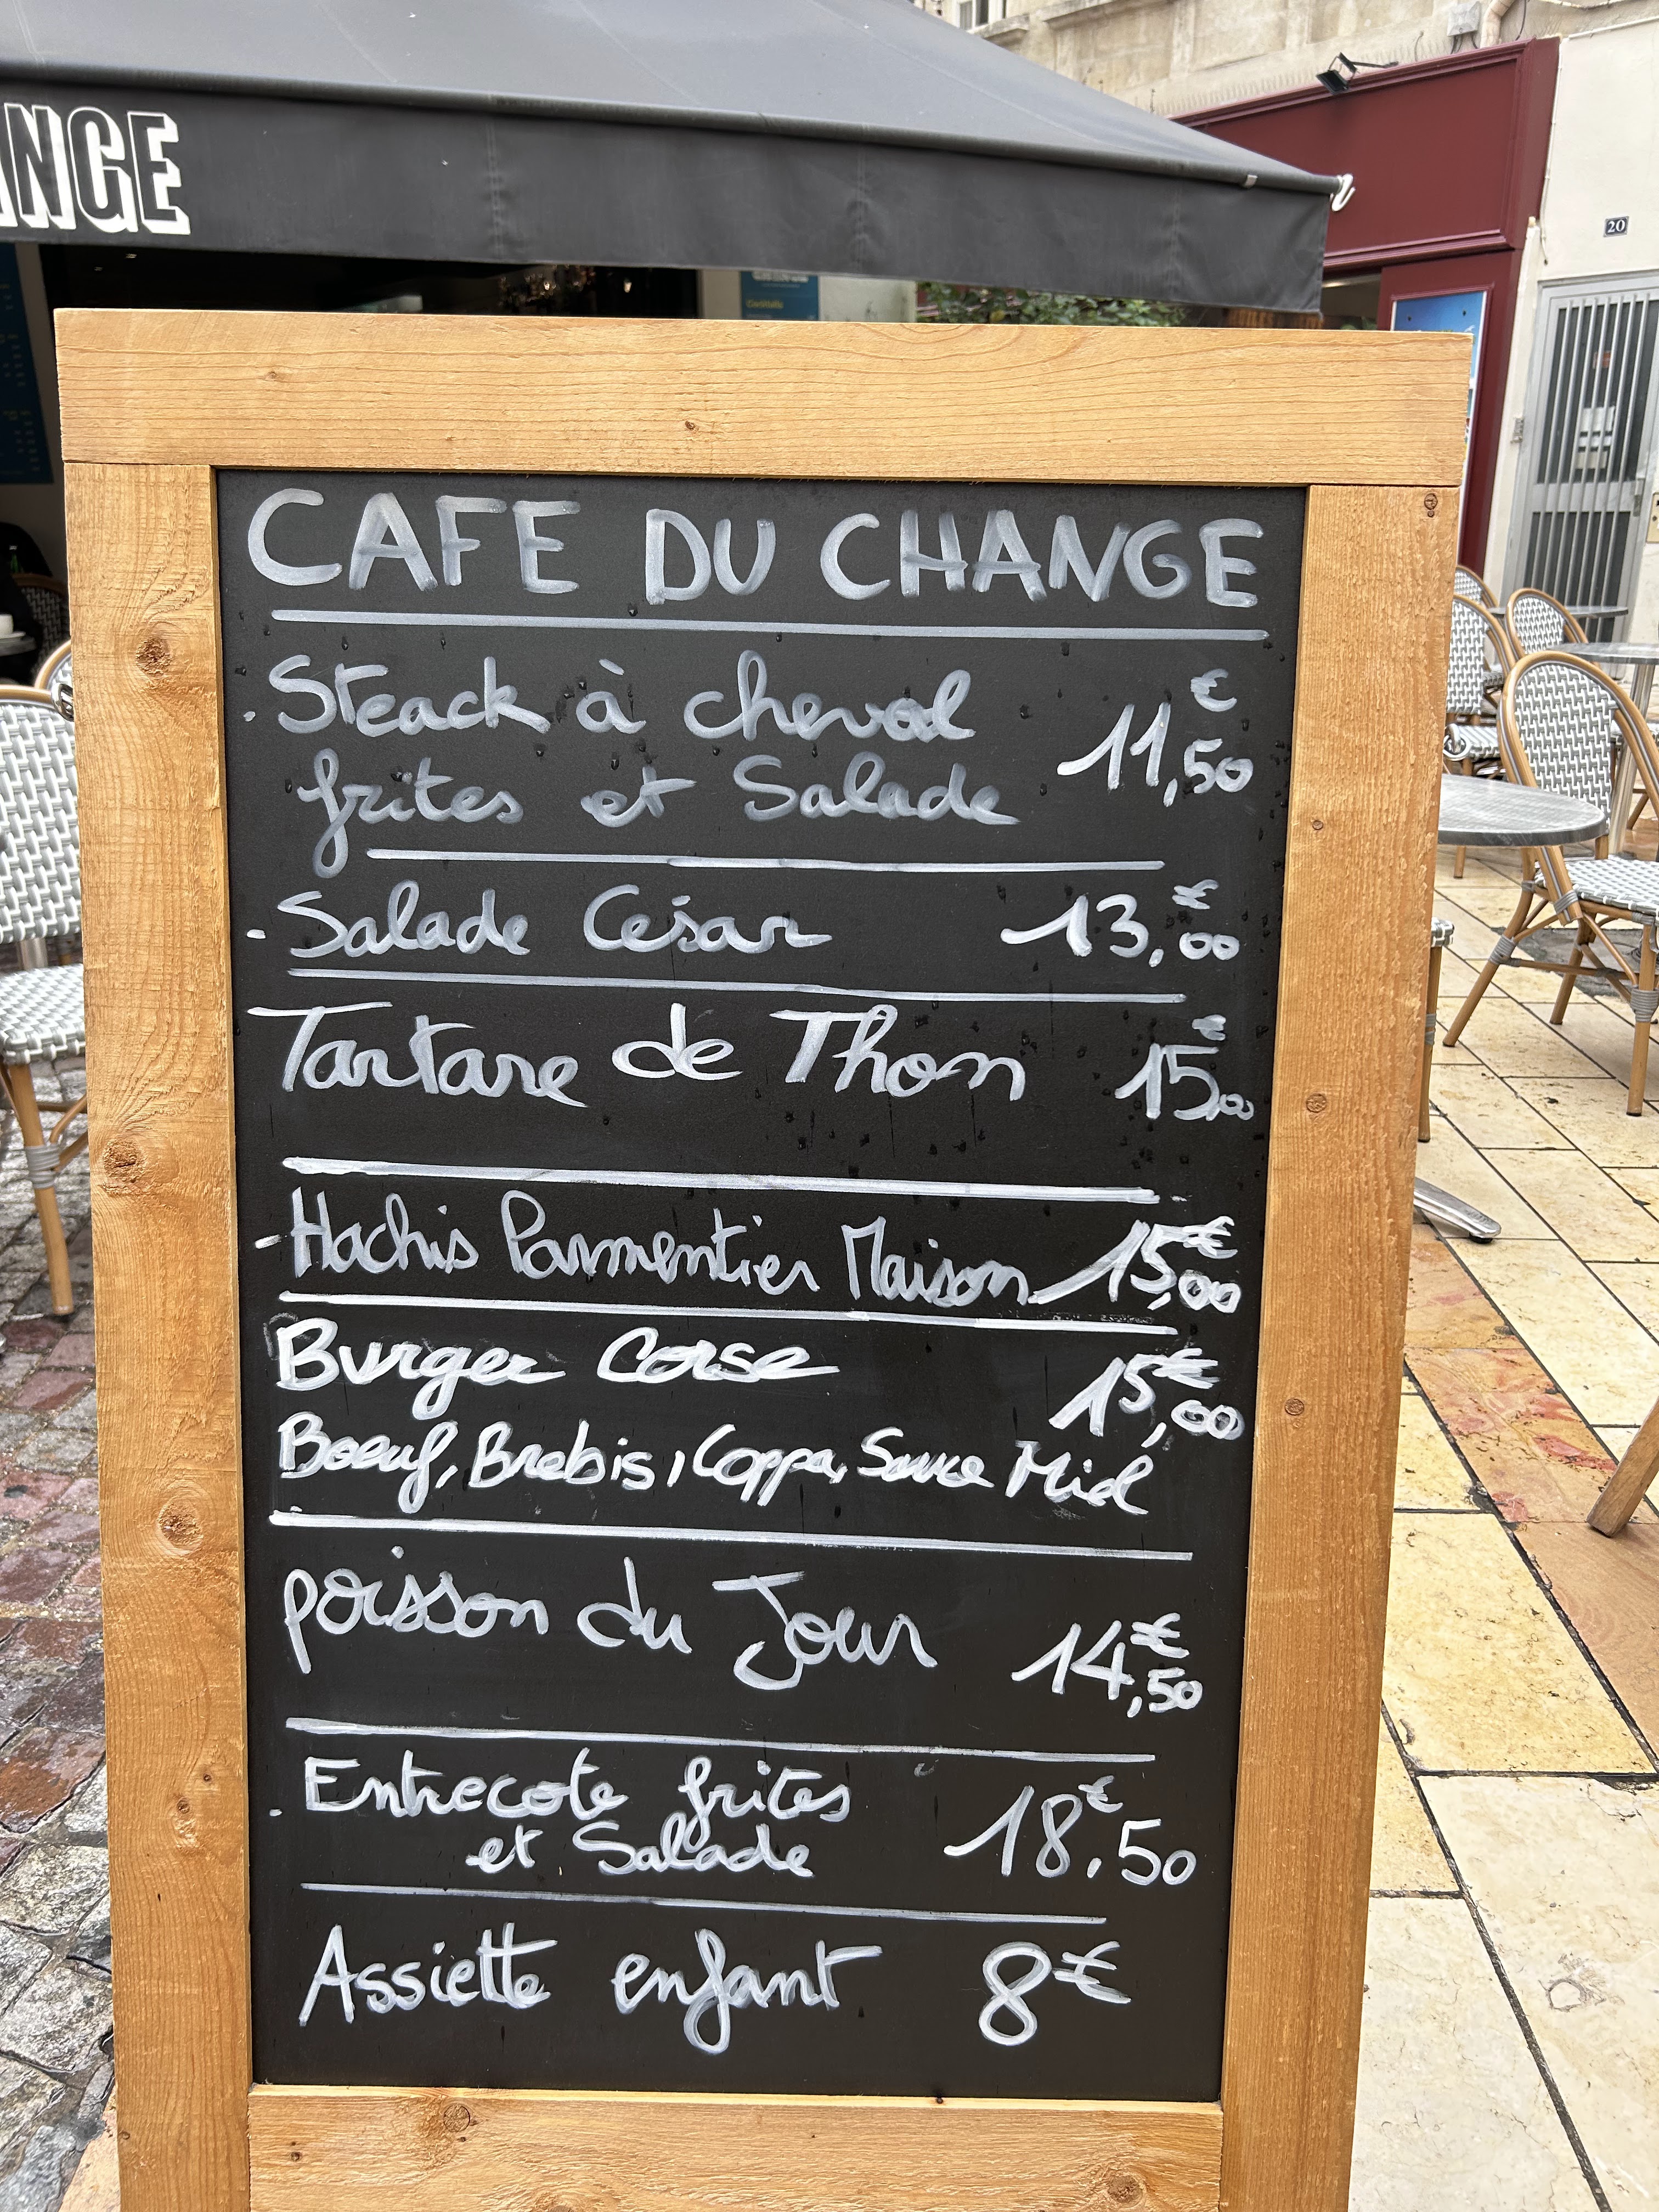 NGE
20
CAFE DU CHANGE
. Steack à cheval
frites et Salade 11,€50
- Salade César 13,€00
Tartare de Thon 15,€00
- Hachis Parmentier Maison 15,€00
Burger Corse 15,€00
Boeuf, Brebis, Coppa, Sauce Miel
poisson du Jour 14,€50
. Entrecote frites
et Salade 18.€50
Assiette enfant 8€